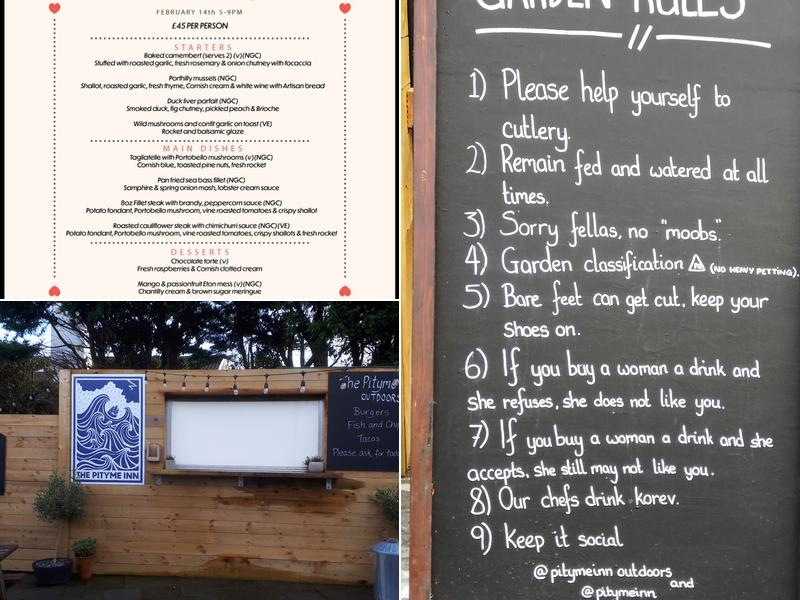 FEBRUARY 14th 5-9PM
£45 PER PERSON
STARTERS
Baked camembert (serves 2) (v)(NGC)
Stuffed with roasted garlic, fresh rosemary & onion chutney with focaccia
Porthilly mussels (NGC)
Shallot, roasted garlic, fresh thyme, Cornish cream & white wine with Artisan bread
Duck liver parfait (NGC)
Smoked duck, fig chutney, pickled peach & Brioche
Wild mushrooms and confit garlic on toast (VE)
Rocket and balsamic glaze
MAIN DISHES
Tagliatelle with Portobello mushrooms (v)(NGC)
Cornish blue, toasted pine nuts, fresh rocket
Pan fried sea bass fillet (NGC)
Samphire & spring onion mash, lobster cream sauce
8oz Fillet steak with brandy, peppercorn sauce (NGC)
Potato fondant, Portobello mushroom, vine roasted tomatoes & crispy shallot
Roasted cauliflower steak with chimichurri sauce (NGC)(VE)
Potato fondant, Portobello mushroom, vine roasted tomatoes, crispy shallots & fresh rocket
DESSERTS
Chocolate torte (v)
Fresh raspberries & Cornish clotted cream
Mango & passionfruit Eton mess (v)(NGC)
Chantilly cream & brown sugar meringue
THE PITYME INN
The Pityme
OUTDOORS
Burgers
Fish and Chip
Tacos
Please ask for
GARDEN RULES
1) Please help yourself to
cutlery.
2) Remain fed and watered at all
times.
3) Sorry fellas, no "moobs".
4) Garden classification (NO HEAVY PETTING).
5) Bare feet can get cut, keep your
shoes on.
6) If you buy a woman a drink and
she refuses, she does not like you.
7) If you buy a woman a drink and she
accepts, she still may not like you.
8) Our chefs drink korev.
9) Keep it social
@pitymeinn outdoors
and
@pitymeinn